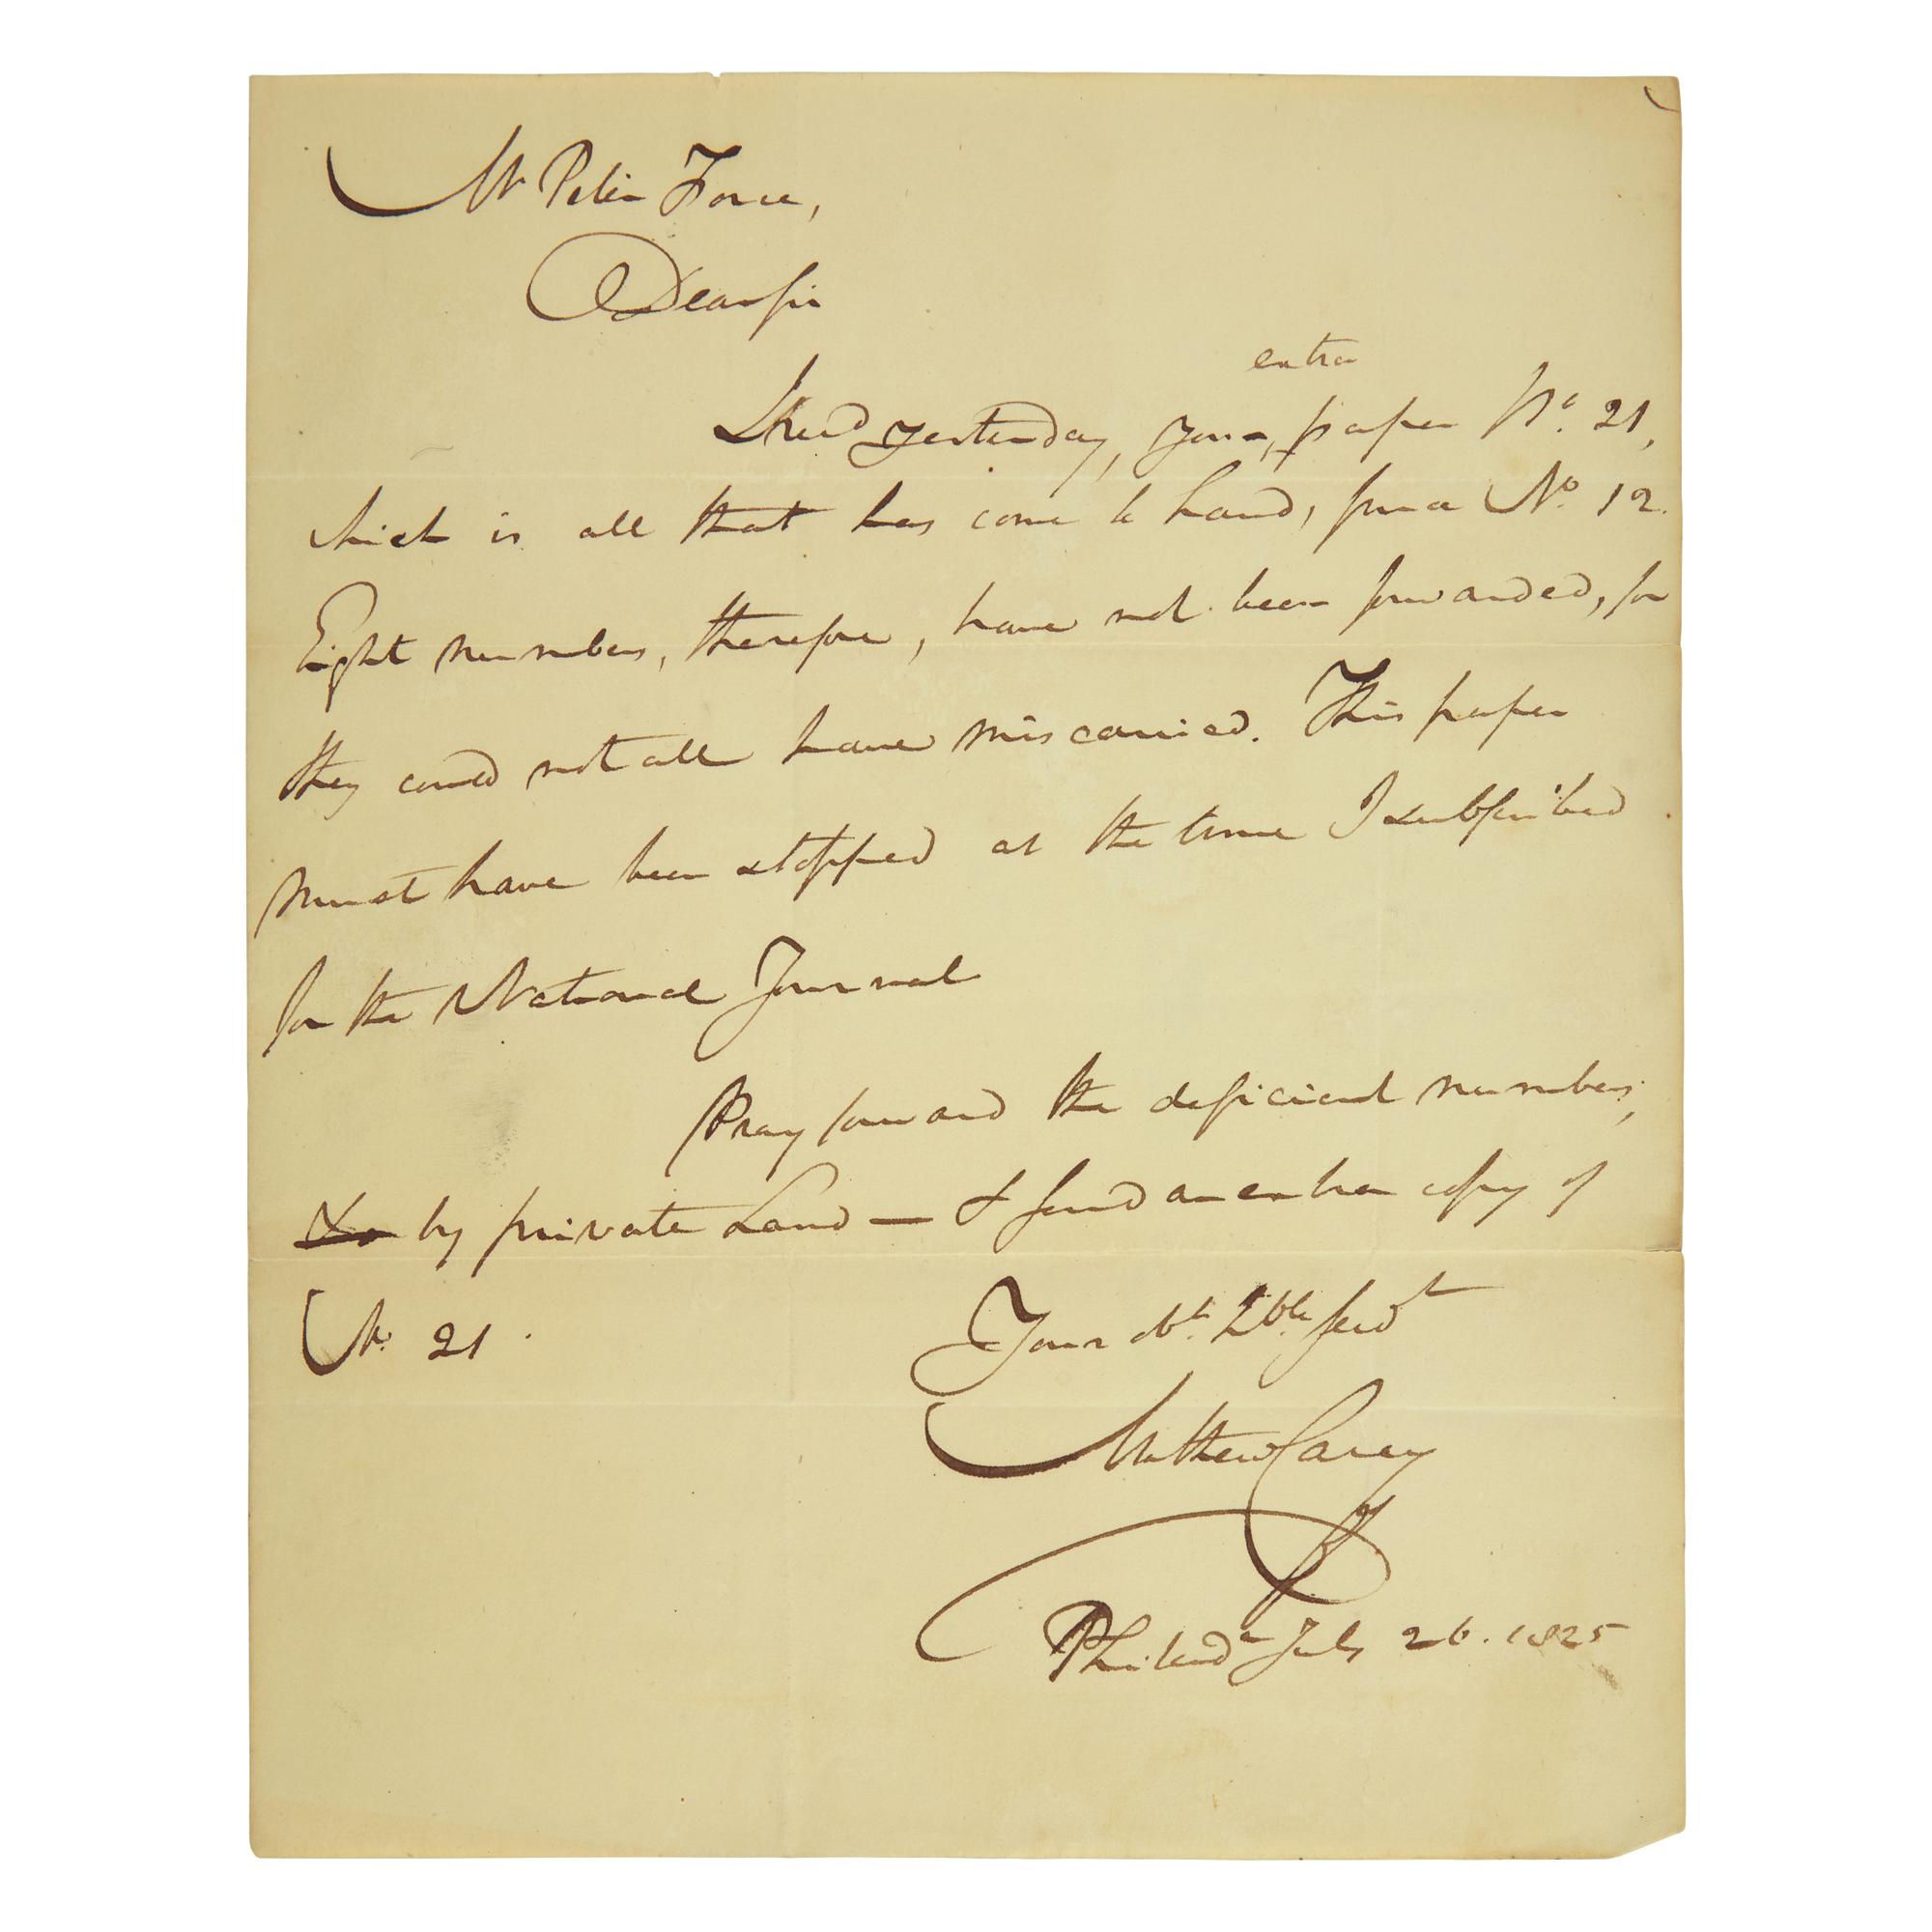 Mr Peter Force,
Dear sir
extra
I recd yesterday, your paper No. 21,
which is all that has come to hand, since No. 12.
Eight numbers, therefore, have not been forwarded, for
they could not all have miscarried. This paper
must have been stopped at the time I subscribed
for the National Journal
Pray forward the deficient numbers,
by private hand — & send an extra copy of
No. 21.
Your obt. hble servt
Mathew Carey
Philada July 26. 1825